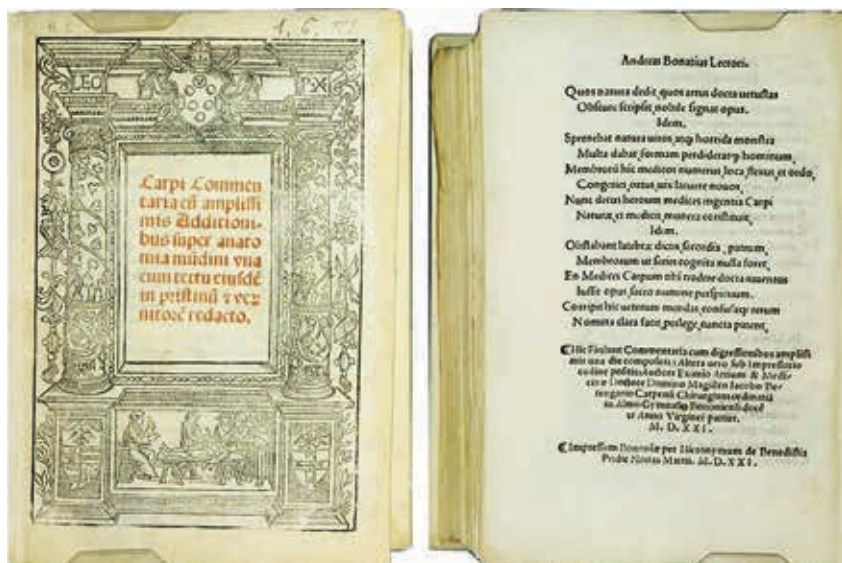 LEO
P X
Carpi Commen
taria cũ amplissi
mis Additioni-
bus super anato
mia mũdini vna
cum textu eiusdẽ
in pristinũ ⁊ verũ
nitorẽ redacto.
Andreas Bonatius Lectori.
Quos natura dedit, quos artus docta uetustas
Obscure scripsit, nobile signat opus.
Idem.
Spernebat natura uiros, atq; horrida monstra
Multa dabat, formam perdideratq; hominum,
Membrorũ hic medicos numerus, loca, flexus, et ordo,
Nunc decus heroum medices ingentia Carpi
Naturæ, et medicis, munera constituit,
Idem.
Obstabant latebræ: dictis, socordia, patrum,
Membrorum ut series cognita nulla foret,
En Medices Carpum tibi tradere docta iuuentus
Iussit opus, sacro numine perspicuum.
Corripit hic ueterum mendas, confusaq; rerum
Nomina clara facit, perlege, cuncta patent,
Hic Finiunt Commentaria cum digressionibus amplissi
mis una die compositis: Altera uero sub Impressorio
ordine positis: Auctore Eximio Artium & Medi-
cinæ Doctore Domino Magistro Iacobo Be
rengario Carpensi Chirurgiam ordinariã
in Almo Gymnasio Bononiensi docẽ
te Anno Virginei partus.
M. D. XXI.
Impressum Bononiæ per Hieronymum de Benedictis
Pridie Nonas Martii. M.D.XXI.